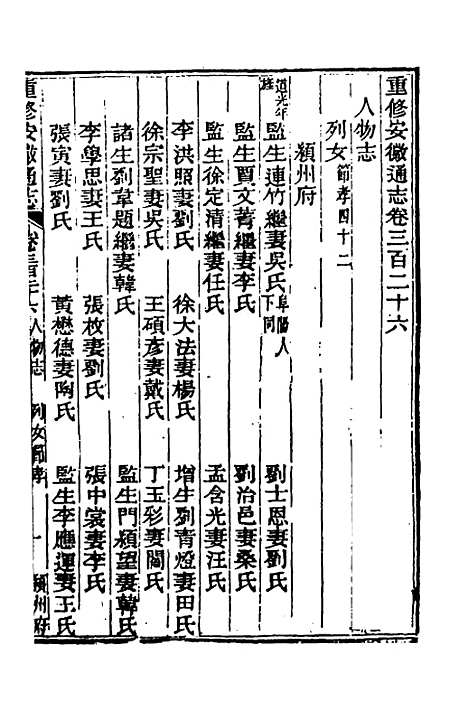 重修安徽通志卷三百二十六
人物志
列女節孝四十二
潁州府
道光年旌
監生連竹繼妻吳氏阜陽人下同
劉士恩妻劉氏
監生賈文菁繼妻李氏
劉治邑妻桑氏
監生徐定清繼妻任氏
孟含光妻汪氏
李洪照妻劉氏
徐大法妻楊氏
增生劉青燈妻田氏
徐宗聖妻吳氏
王碩彥妻戴氏
丁玉彩妻閻氏
諸生劉韋題繼妻韓氏
監生門潁望妻韓氏
李學思妻王氏
張枚妻劉氏
張中裳妻李氏
張寅妻劉氏
黃懋德妻陶氏
監生李應運妻王氏
重修安徽通志
卷三百二十六人物志
列女節孝
一
潁州府